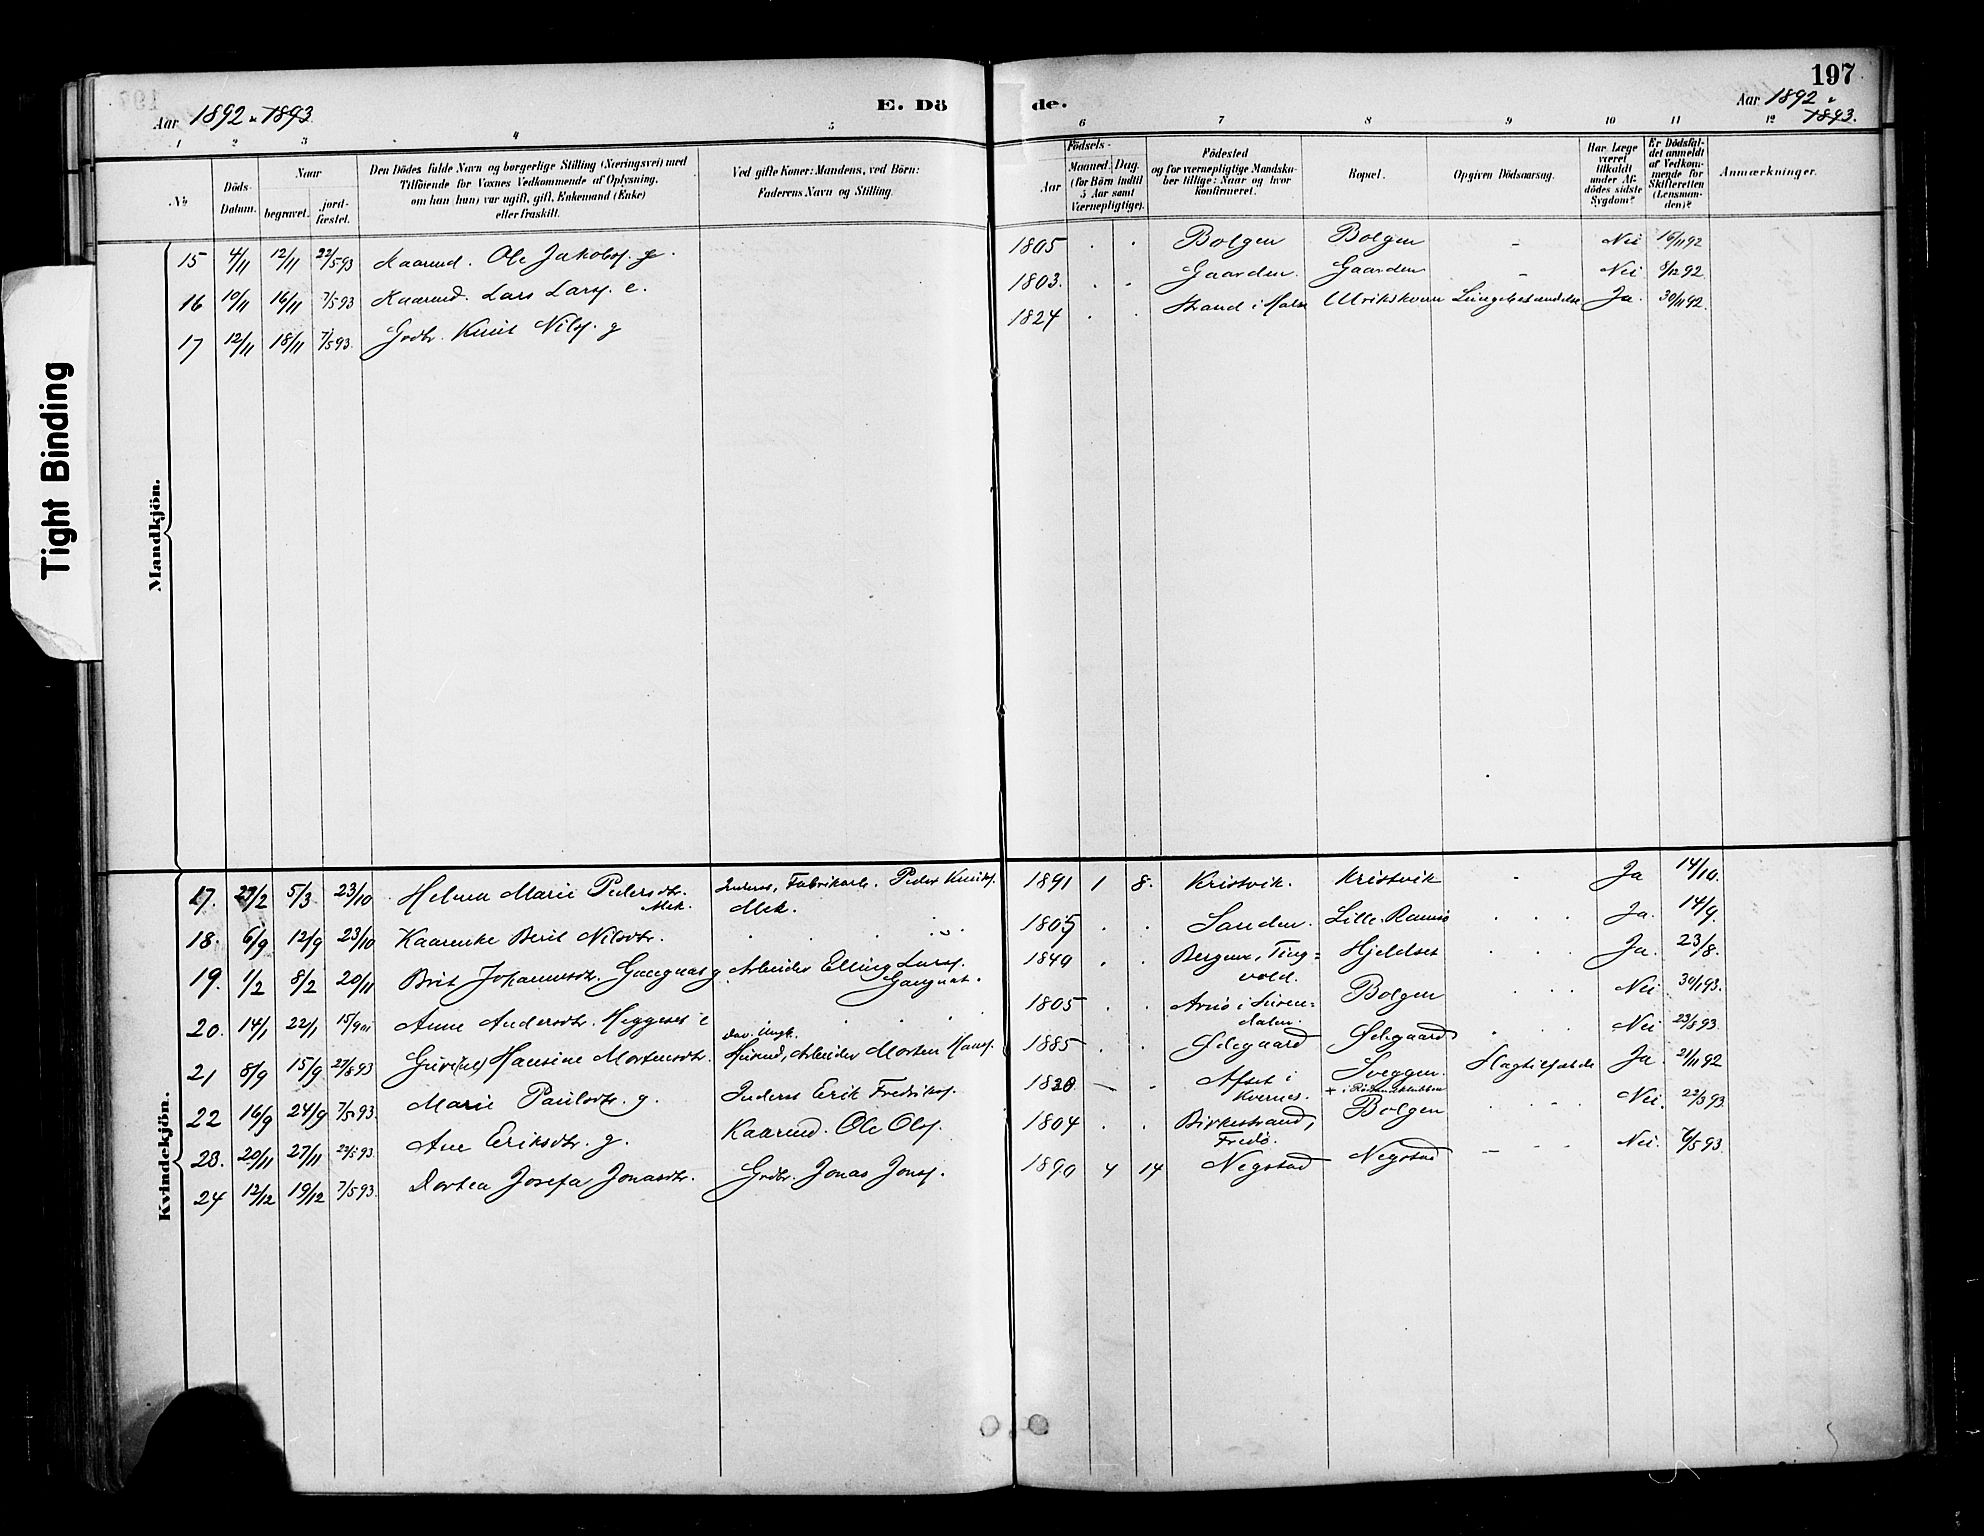 197
Aar 1892 & 1893
E. Dö de.
Aar 1892 &
1893.
1 2 3 4 5 6 7 8 9 10 11 12
No
Döds-
Datum.
Naar
begravet.
jord-
fæstet.
Den Dödes fulde Navn og borgerlige Stilling (Næringsvei) med
Tilföiende for Voxnes Vedkommende af Oplysning,
om han (hun) var ugift, gift, Enkemand (Enke)
eller fraskilt.
Ved gifte Koner: Mandens, ved Börn:
Faderens Navn og Stilling.
Födsels-
Aar
Maaned. Dag.
(for Börn indtil
5 Aar samt
Værnepligtige).
Födested
og for værnepligtige Mandska-
ber tillige: Naar og hvor
konfirmeret.
Bopæl.
Opgiven Dödsaarsag.
Har Læge
været
tilkaldt
under Af-
dödes sidste
Sygdom?
Er Dödsfal-
det anmeldt
af Vedkom-
mende for
Skifteretten
(Lensman-
den)?
Anmærkninger.
Tight Binding
Mandkjön.
15 4/11 12/11 22/5 93 Kaarmd. Ole Jakobs. g. 1805 . . Bolgen Bolgen - Nei 15/11 92
16 10/11 16/11 7/5 93 Kaarmd. Lars Lars. e. 1803. . . Gaarden. Gaarden - Nei 8/12 92
17 12/11 18/11 7/5 93. Grdbr. Knut Nils. g 1824 . . Strand i Ulrikskvern Ja. 30/11 92.
Kvindekjön.
17. 27/2 5/3 23/10 Helma Marie Pedersdtr. Inderst, Fabrikarb. Peder Knuts. 1891 1 8. Kristvik. Kristvik - Ja 14/10.
Mek. Mek.
18. 6/9 12/9 23/10 Kaarenke Berit Nilsdtr. 1805 . . Sanden. Lille Ramsö . . . Ja. 14/9.
19. 1/2 8/2 20/11 Brit Johannesdtr. g. Arbeider Elling Lars. 1840 . . Bergem, Ting= Hjeldset . . . Ja. 23/8.
vold.
20. 14/1 22/1 15/9 Anne Andersdtr. Heggeset e 1805 . . Arnö i Suren= Bolgen . . . Nei 30/1 93.
dalen.
21 8/9 15/9 27/8 93 Hansine Mortensdtr. Husmd, Arbeider Morten Hans. 1885 . . Ødegaard Ødegaard . . . Nei 23/8 93.
22 16/9 24/9 7/5 93. Marie Paulsdtr. g. Inderst Erik Fredriks. 1820 - . Afset i Sveggen. Slagtilfælde Ja. 21/11 92
Kvernes.
23. 20/11 27/11 22/5 93. Ane Eriksdtr. g. Kaarmd. Ole Ols. 1804 . . Birkestrand, Bolgen . . . Nei. 22/3 93
Fredö.
24 12/12 19/12 7/5 93. Dortea Josefa Jonasdtr. Grdbr. Jonas Jons. 1890 4 14 Negstad Negstad - . . Nei. 7/5 93.